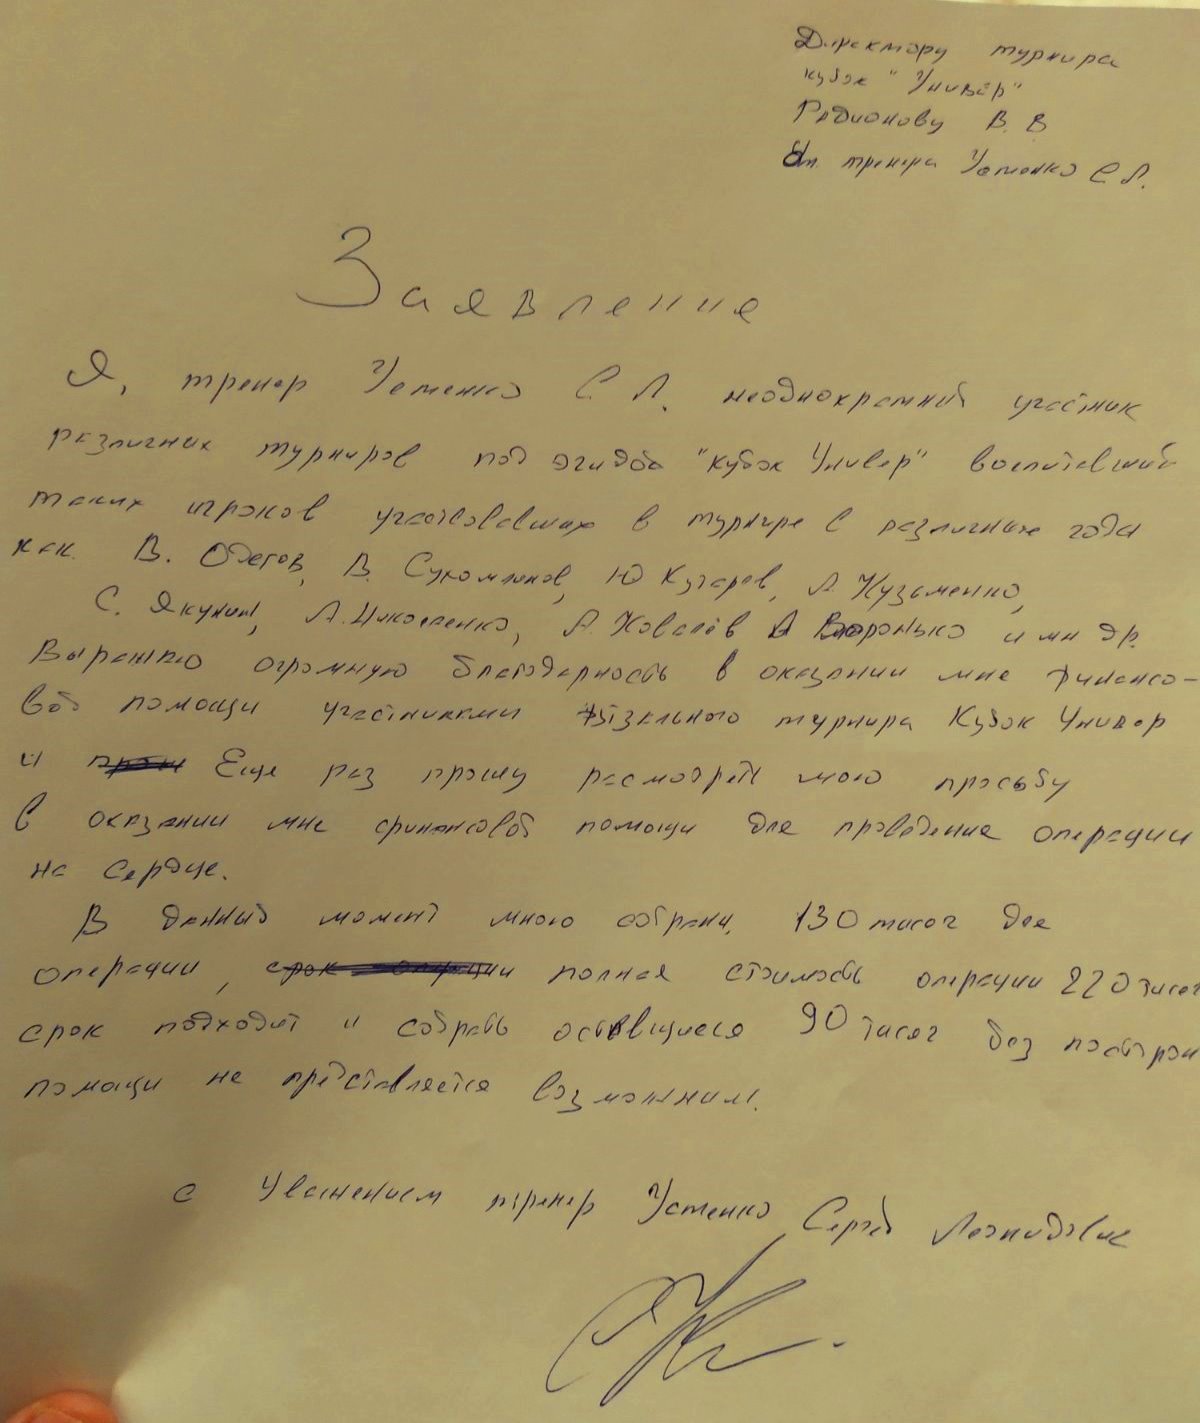 Директору турнира
кубок "Универ"
Радионову В. В
От тренера Устенко С Л.
Заявление
Я, тренер Устенко С. Л. неоднократний участник
различних турниров под эгидой "Кубок Универ" воспитавший
таких игроков участвовавших в турнире в различные года
как В. Одегов, В. Сухомлинов, Ю Кучеров, А Кузьменко,
С. Якунин, А. Николаенко, А. Ковалёв А Воронько и мн др.
Выражаю огромную благодарность в оказании мне финансо-
вой помощи участниками футзального турнира Кубок Универ
и Еще раз прошу расмотреть мою просьбу
в оказании мне финансовой помощи для проведение операции
на сердце.
В данный момент мною собрани, 130 тисяч для
операции, полная стоимость операции 220 тисяч
срок подходит и собрать оставщиеся 90 тисяч без посторон
помощи не представляется возможним.
С Уважением тренер Устенко Сергей Леонидович